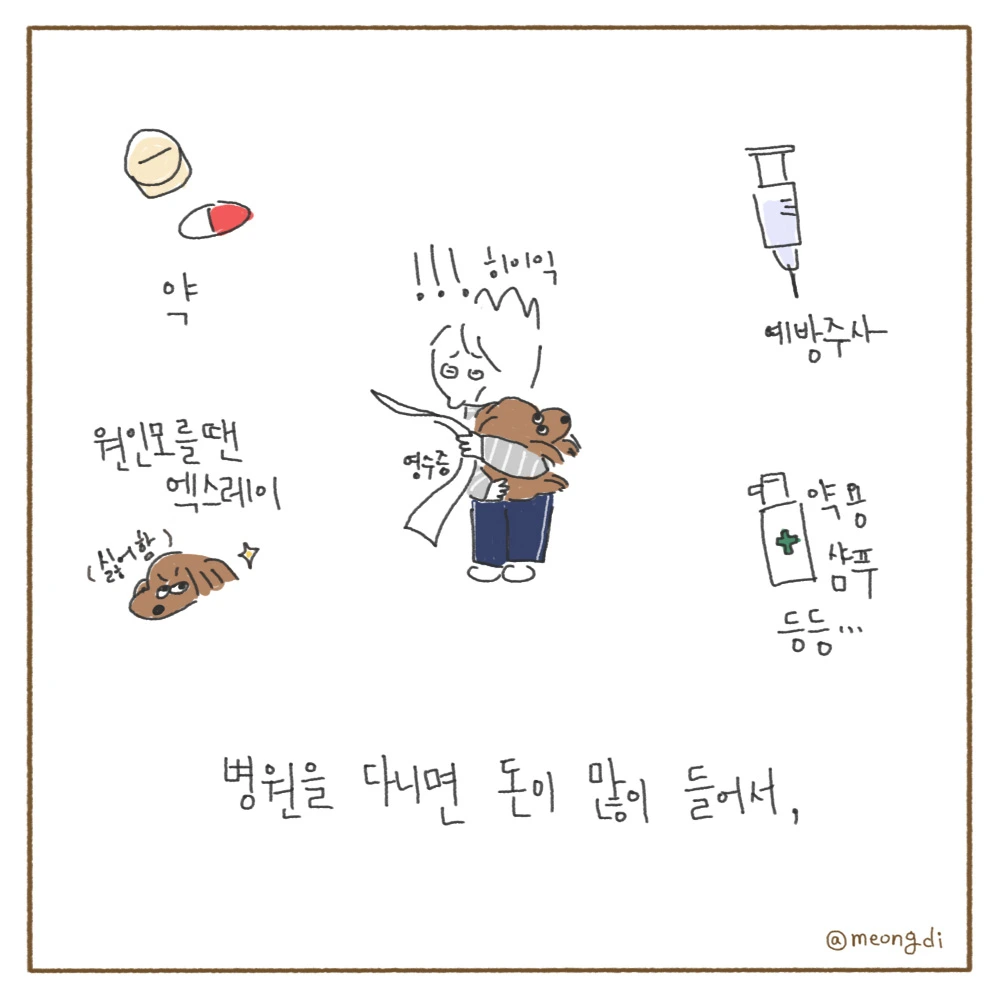 약
!!! 히이익
예방주사
원인모를땐
엑스레이
(싫어함)
영수증
약용
샴푸
등등...
병원을 다니면 돈이 많이 들어서,
@meong_di